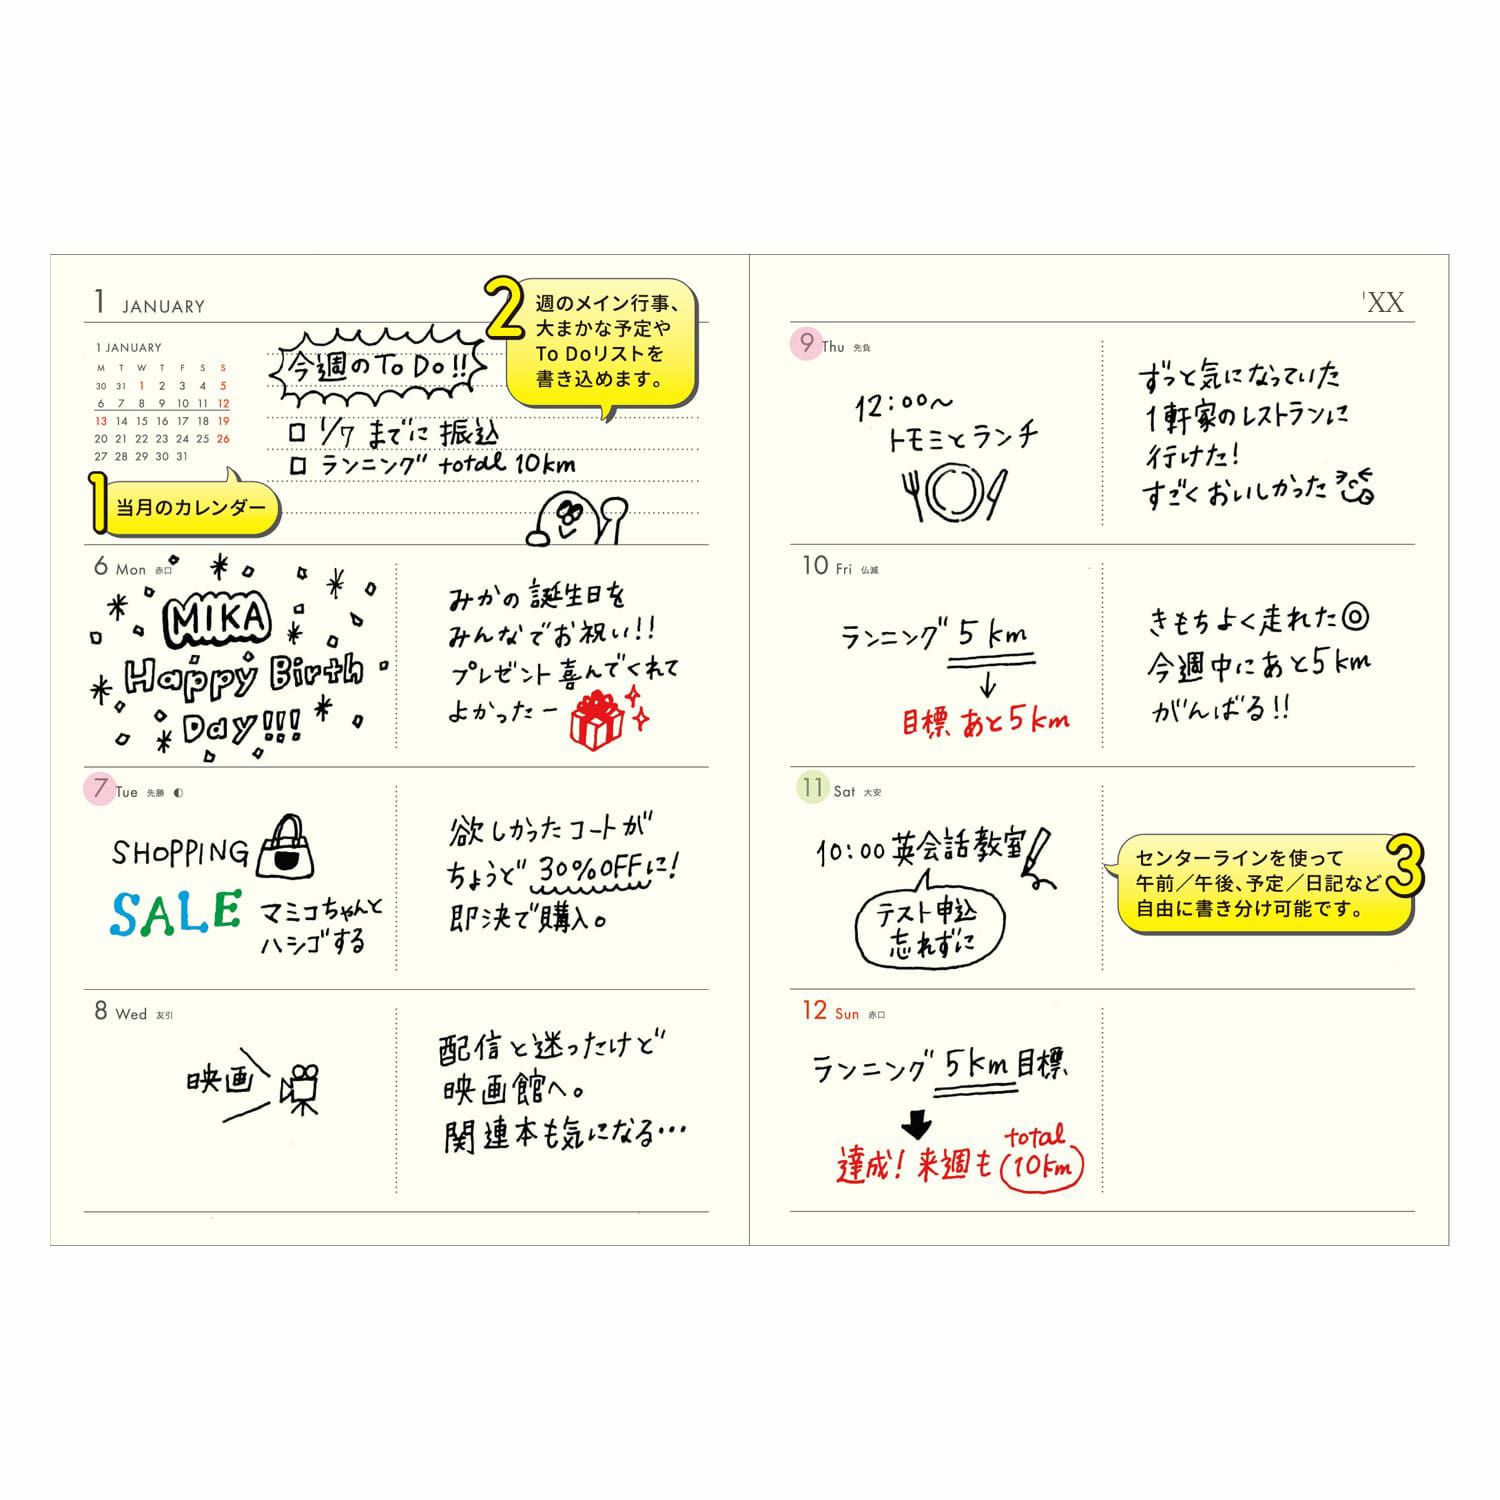 1 JANUARY
1 JANUARY
M T W T F S S
30 31 1 2 3 4 5
6 7 8 9 10 11 12
13 14 15 16 17 18 19
20 21 22 23 24 25 26
27 28 29 30 31
1 当月のカレンダー
今週のTo Do!!
□ 1/7 までに 振込
□ ランニング total 10km
2
週のメイン行事、
大まかな予定や
To Doリストを
書き込めます。
6 Mon 赤口
MIKA
Happy Birth
Day!!!
みかの誕生日を
みんなでお祝い!!
プレゼント喜んでくれて
よかったー
7 Tue 先勝
SHOPPING
SALE
マミコちゃんと
ハシゴする
欲しかったコートが
ちょうど 30%OFFに!
即決で購入。
8 Wed 友引
映画
配信と迷ったけど
映画館へ。
関連本も気になる…
'XX
9 Thu 先負
12:00〜
トモミとランチ
ずっと気になっていた
1軒家のレストランに
行けた!
すごくおいしかった
10 Fri 仏滅
ランニング 5km
↓
目標 あと5km
きもちよく走れた◎
今週中にあと5km
がんばる!!
11 Sat 大安
10:00 英会話教室
テスト申込
忘れずに
3
センターラインを使って
午前/午後、予定/日記など
自由に書き分け可能です。
12 Sun 赤口
ランニング 5km目標
達成! 来週も total
10km